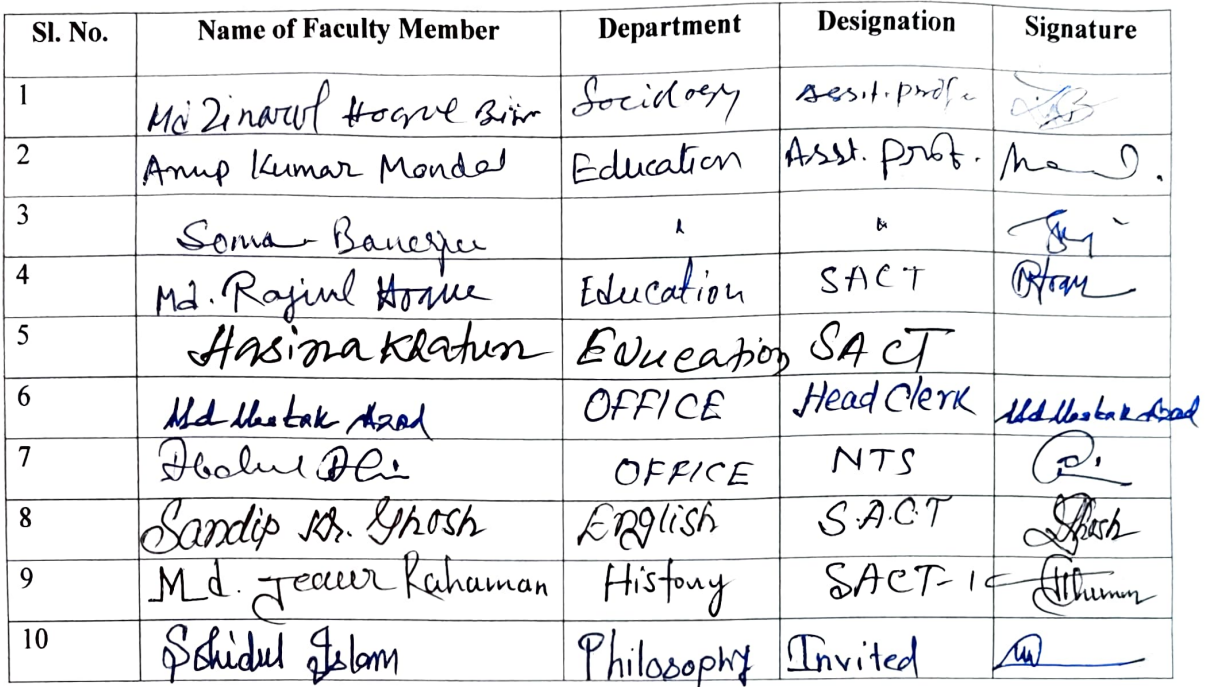 Sl. No. Name of Faculty Member Department Designation Signature
1 Md Zinarul Hoque Sociology Assit. prof.
2 Anup Kumar Mondal Education Asst. prof.
3 Soma Banerjee " "
4 Md. Rajiul Hoque Education SACT
5 Hasina Khatun Education SACT
6 Md Mustak Azad OFFICE Head Clerk Md Mustak Azad
7 OFFICE NTS
8 Sandip Kr. Ghosh English S.A.C.T Ghosh
9 Md. Jeaur Rahaman History SACT-1
10 Sohidul Islam Philosophy Invited